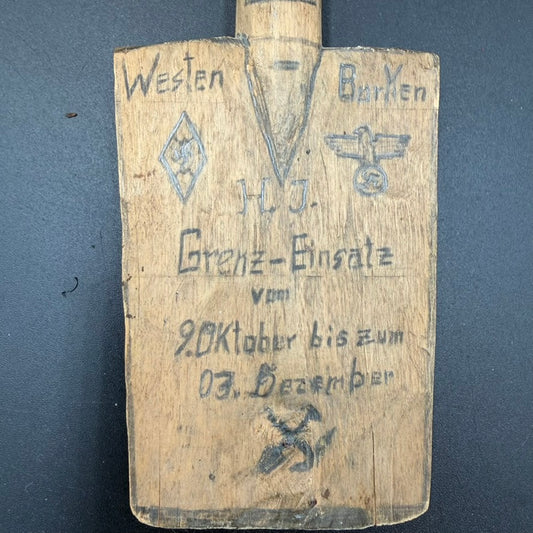 Westen Borken
H.J.
Grenz-Einsatz
vom
9.Oktober bis zum
03. Dezember